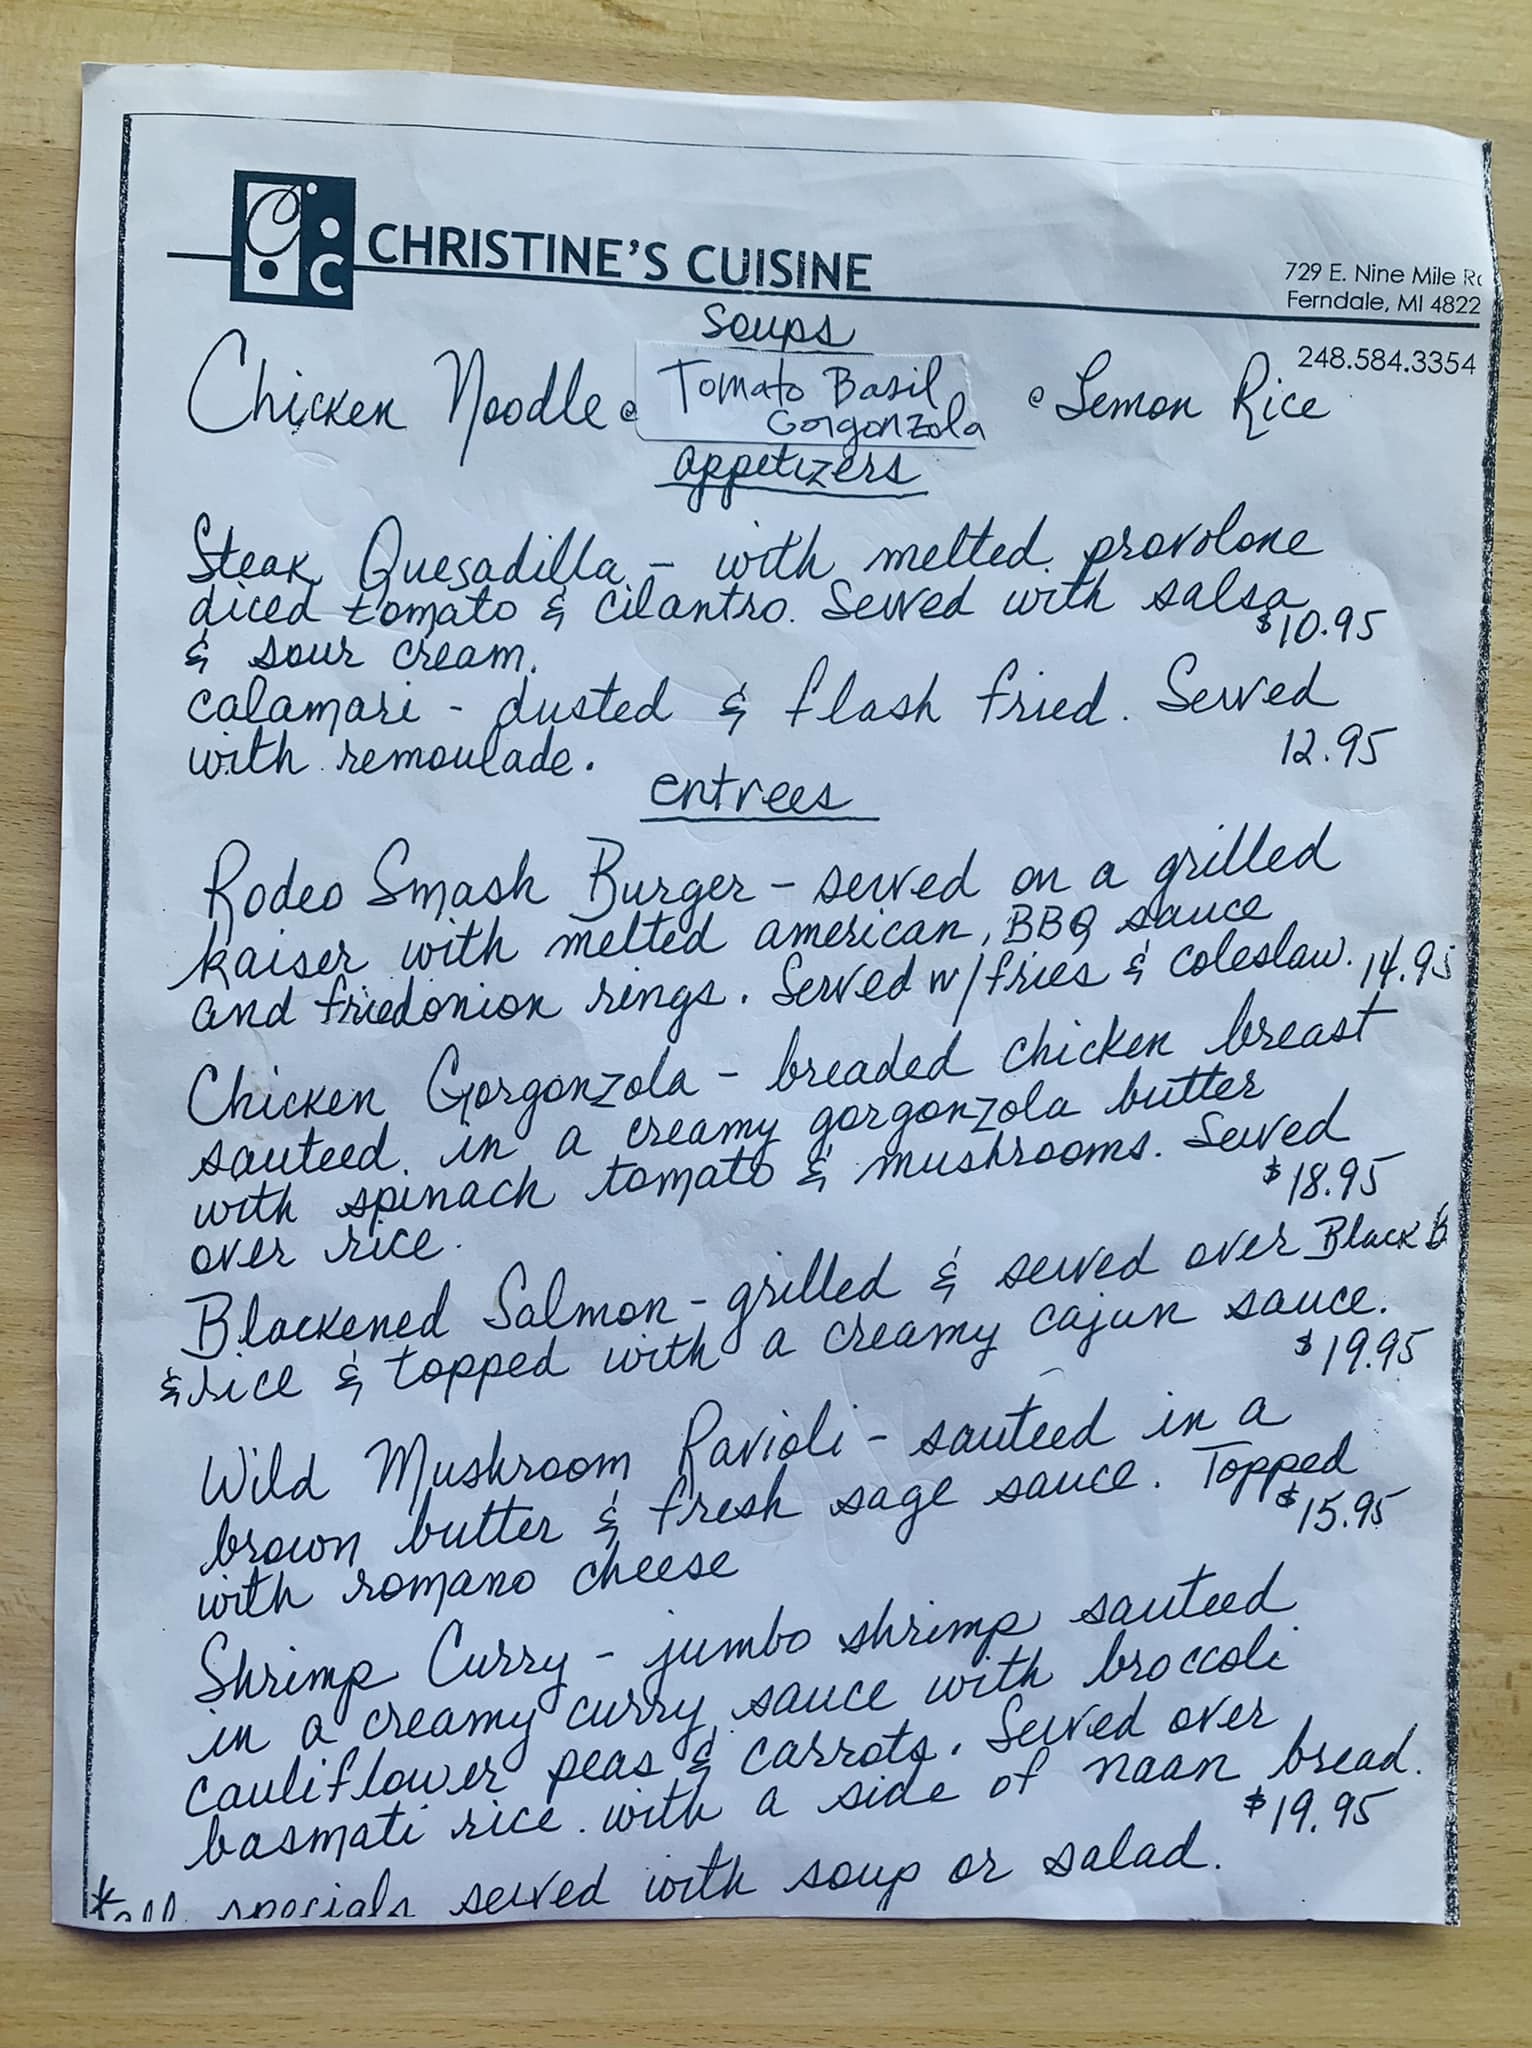 C C
CHRISTINE'S CUISINE
729 E. Nine Mile R
Ferndale, MI 4822
248.584.3354
Soups
Chicken Noodle Tomato Basil Lemon Rice
Gorgonzola
appetizers
Steak Quesadilla - with melted provolone
diced tomato & cilantro. Served with salsa
& sour cream. $10.95
calamari - dusted & flash fried. Served
with remoulade. 12.95
entrees
Rodeo Smash Burger - served on a grilled
kaiser with melted american, BBQ sauce
and fried onion rings. Served w/fries & coleslaw. 14.95
Chicken Gorgonzola - breaded chicken breast
sauteed in a creamy gorgonzola butter
with spinach tomato & mushrooms. Served
over rice. $18.95
Blackened Salmon - grilled & served over Black B
& rice & topped with a creamy cajun sauce.
$19.95
Wild Mushroom Ravioli - sauteed in a
brown butter & fresh sage sauce. Topped
with romano cheese $15.95
Shrimp Curry - jumbo shrimp sauteed
in a creamy curry sauce with broccoli
cauliflower peas & carrots. Served over
basmati rice. with a side of naan bread.
$19.95
*all specials served with soup or salad.